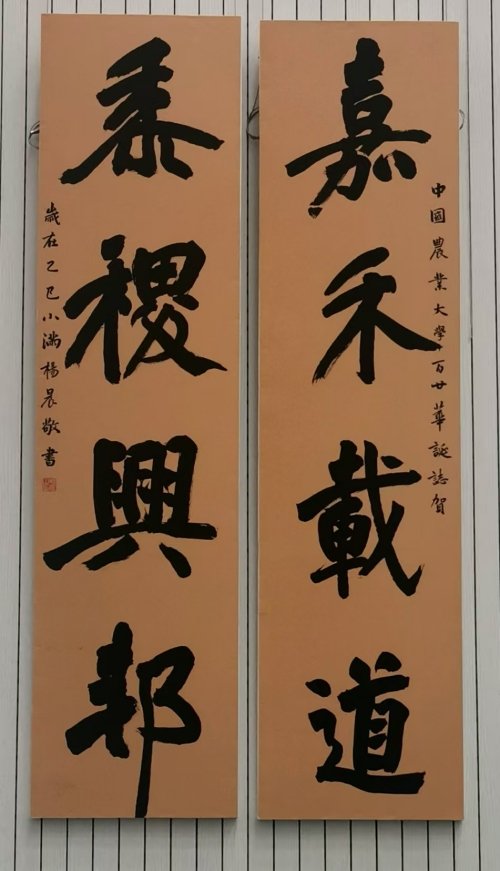 中國農業大學百廿華誕誌賀
嘉禾載道
黍稷興邦
歲在乙巳小滿楊晨敬書